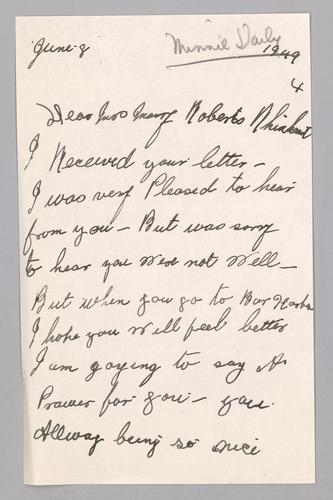 June-8
Minnie Daily
1949
4
Dear Mrs Mary Roberts Rhinhart
I Received your letter-
I was very Pleased to hear
from you - But was sorry
to hear you Were not Well-
But when you go to Bar Harbor
I hope you Will feel better
I am goying to say A
Prawer for you - you
Allway being so nice